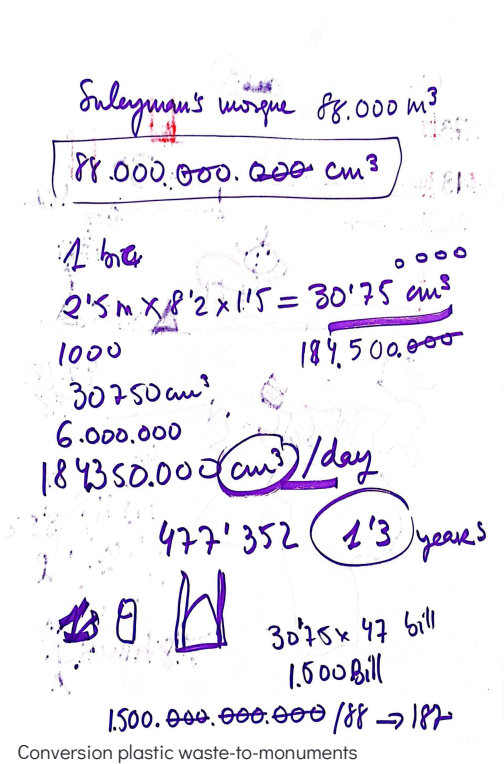 Suleyman's mosque 88.000 m³
88.000.000.000 cm³
1 bric
2'5 m x 8'2 x 1'5 = 30'75 cm³
1000
184.500.000
30750 cm³
6.000.000
184350.000 cm³/day
477'352 1'3 years
30'75 x 47 bill
1.500 Bill
1.500.000.000.000/88 → 187
Conversion plastic waste-to-monuments